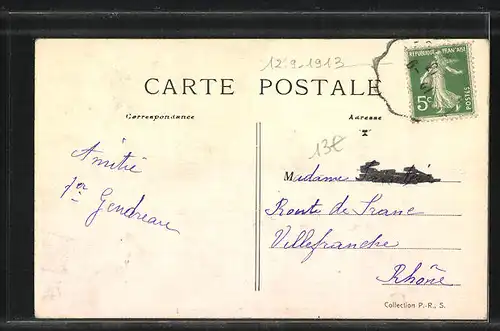 12-9-1913
REPUBLIQUE FRANÇAISE
5c
POSTES
CARTE POSTALE
Correspondance
Adresse
13€
Amitié
Gendreau
Madame
Route de
Villefranche
Rhône
Collection P.-R., S.